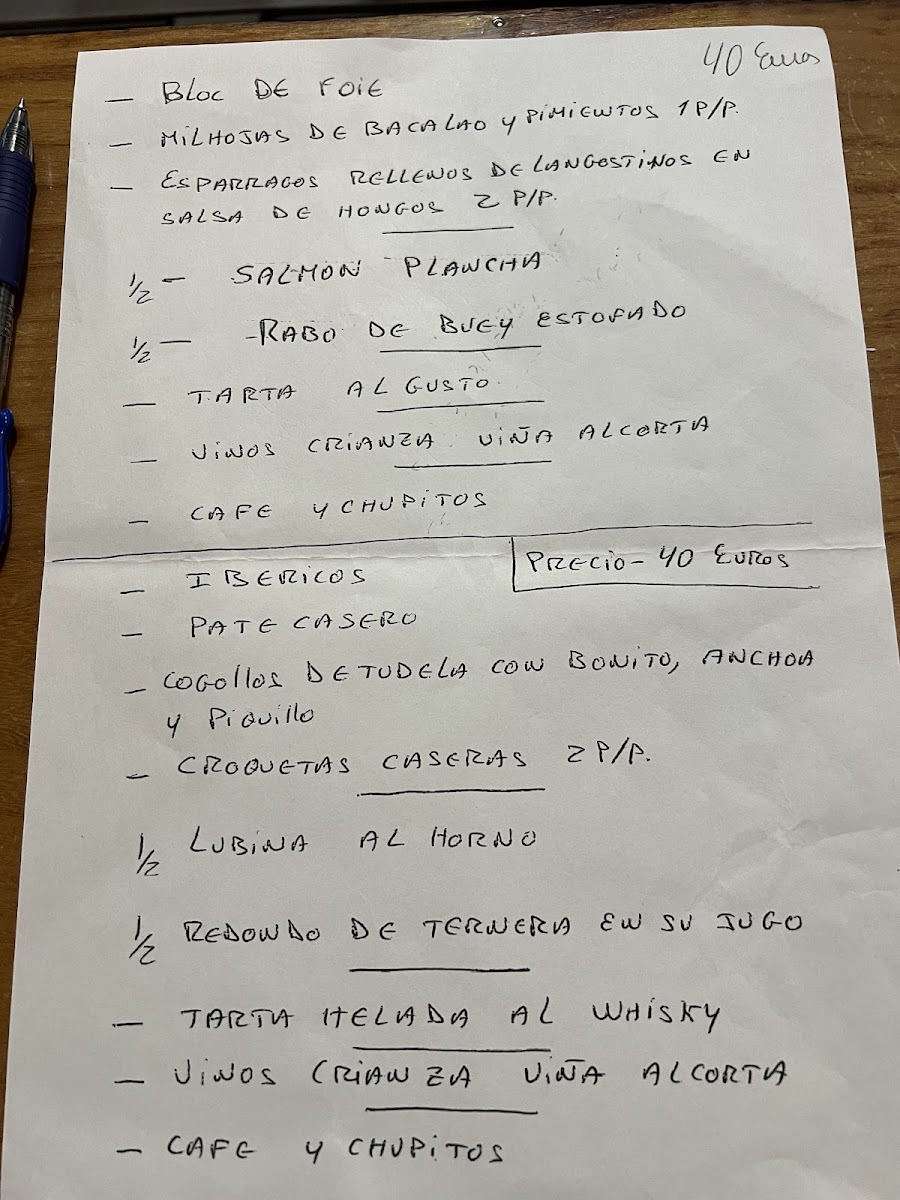 40 Euros
— BLOC DE FOIE
— MILHOJAS DE BACALAO Y PIMIENTOS 1 P/P.
— ESPARRAGOS RELLENOS DE LANGOSTINOS EN
SALSA DE HONGOS 2 P/P.
1/2 — SALMON PLANCHA
1/2 — -RABO DE BUEY ESTOFADO
— TARTA AL GUSTO
— VINOS CRIANZA VIÑA ALCORTA
— CAFE Y CHUPITOS
PRECIO - 40 EUROS
— IBERICOS
— PATE CASERO
— COGOLLOS DE TUDELA CON BONITO, ANCHOA
Y PIQUILLO
— CROQUETAS CASERAS 2 P/P.
1/2 LUBINA AL HORNO
1/2 REDONDO DE TERNERA EN SU JUGO
— TARTA HELADA AL WHISKY
— VINOS CRIANZA VIÑA ALCORTA
— CAFE Y CHUPITOS